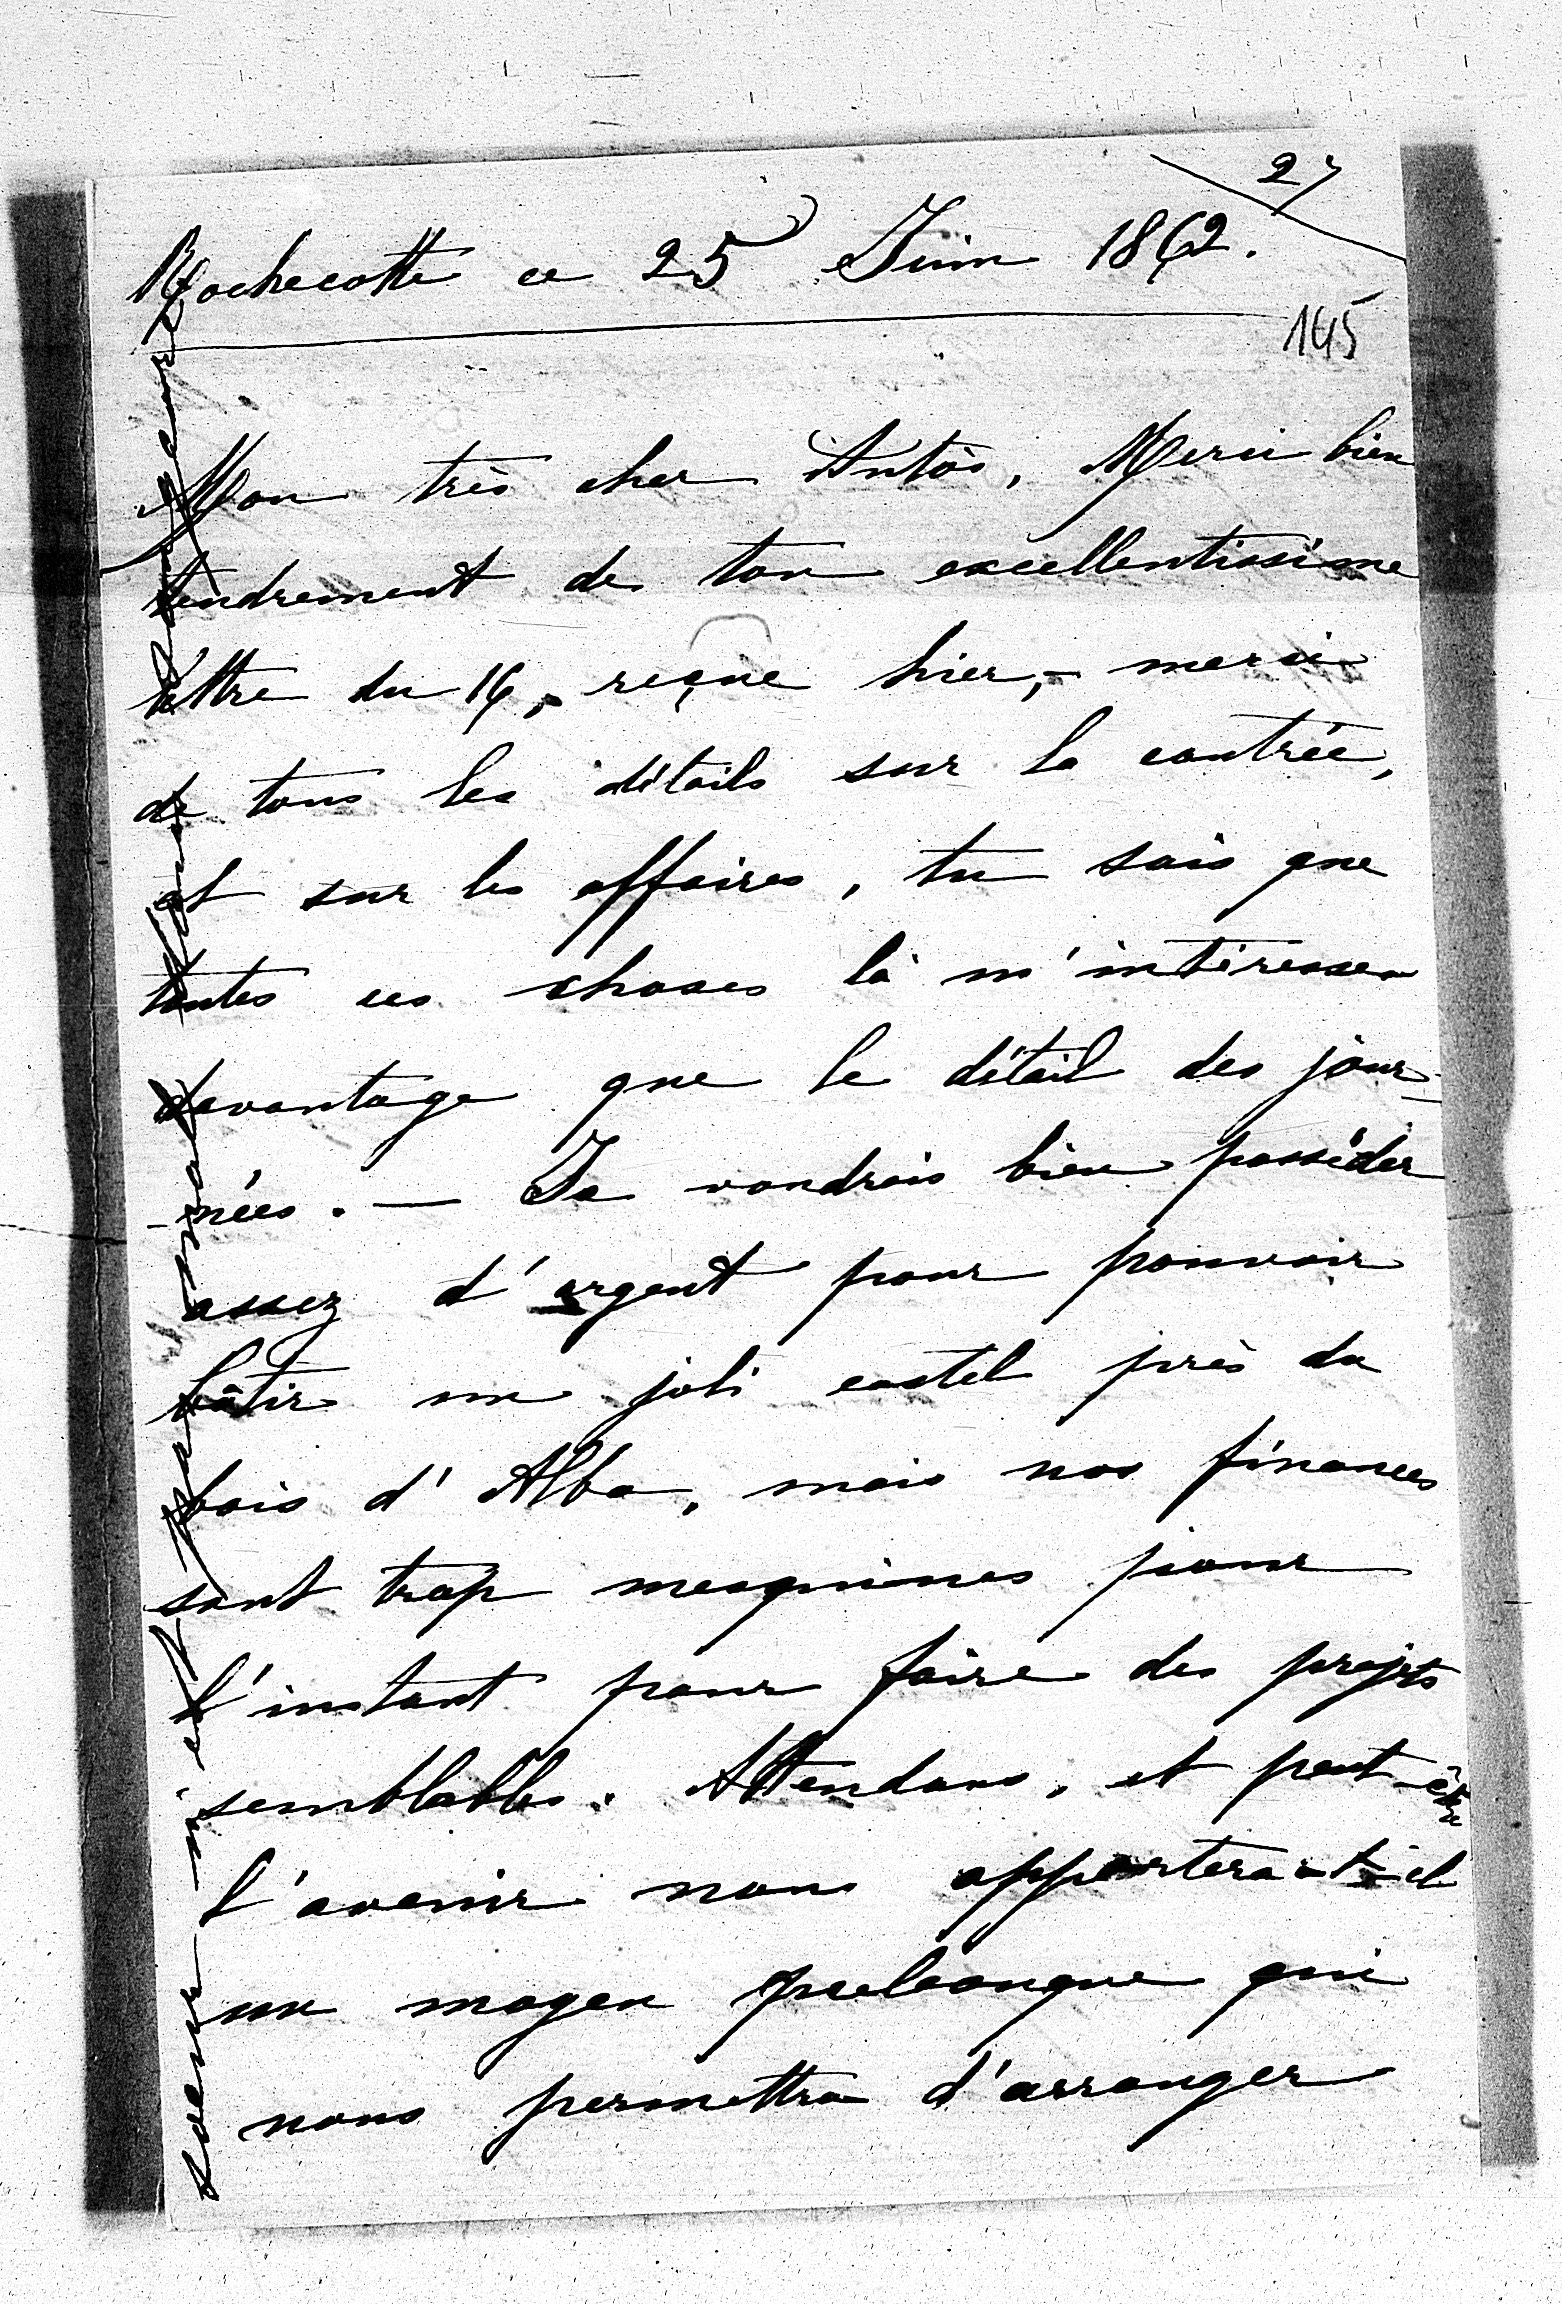 27
Rochecotte ce 25 Juin 1862.
145
Mon très cher Antòs, Merci bien
tendrement de ton excellentissime
lettre du 16, reçue hier, - merci
de tous les détails sur la contrée,
et sur les affaires, tu sais que
toutes ces choses là m'intéressen
davantage que le détail des jour-
-nées. — Je voudrais bien posséder
assez d'argent pour pouvoir
bâtir un joli castel près du
bois d'Alba, mais nos finances
sont trop mesquines pour
l'instant pour faire des projets
semblables. Attendons, et peut-être
l'avenir nous apportera-t-il
un moyen quelconque qui
nous permettra d'arranger